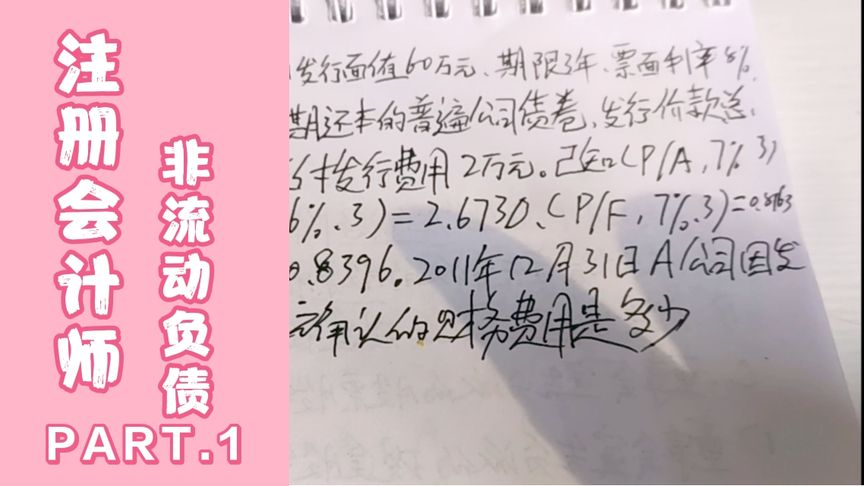 注册会计师
非流动负债
PART.1
发行面值60万元、期限3年、票面利率8%、
期还本的普遍公司债卷,发行价款总
付发行费用2万元。已知(P/A,7%3)
6%、3)=2.6730、(P/F,7%,3)=0.8163
0.8396。2011年12月31日A公司因发
应确认的财务费用是多少